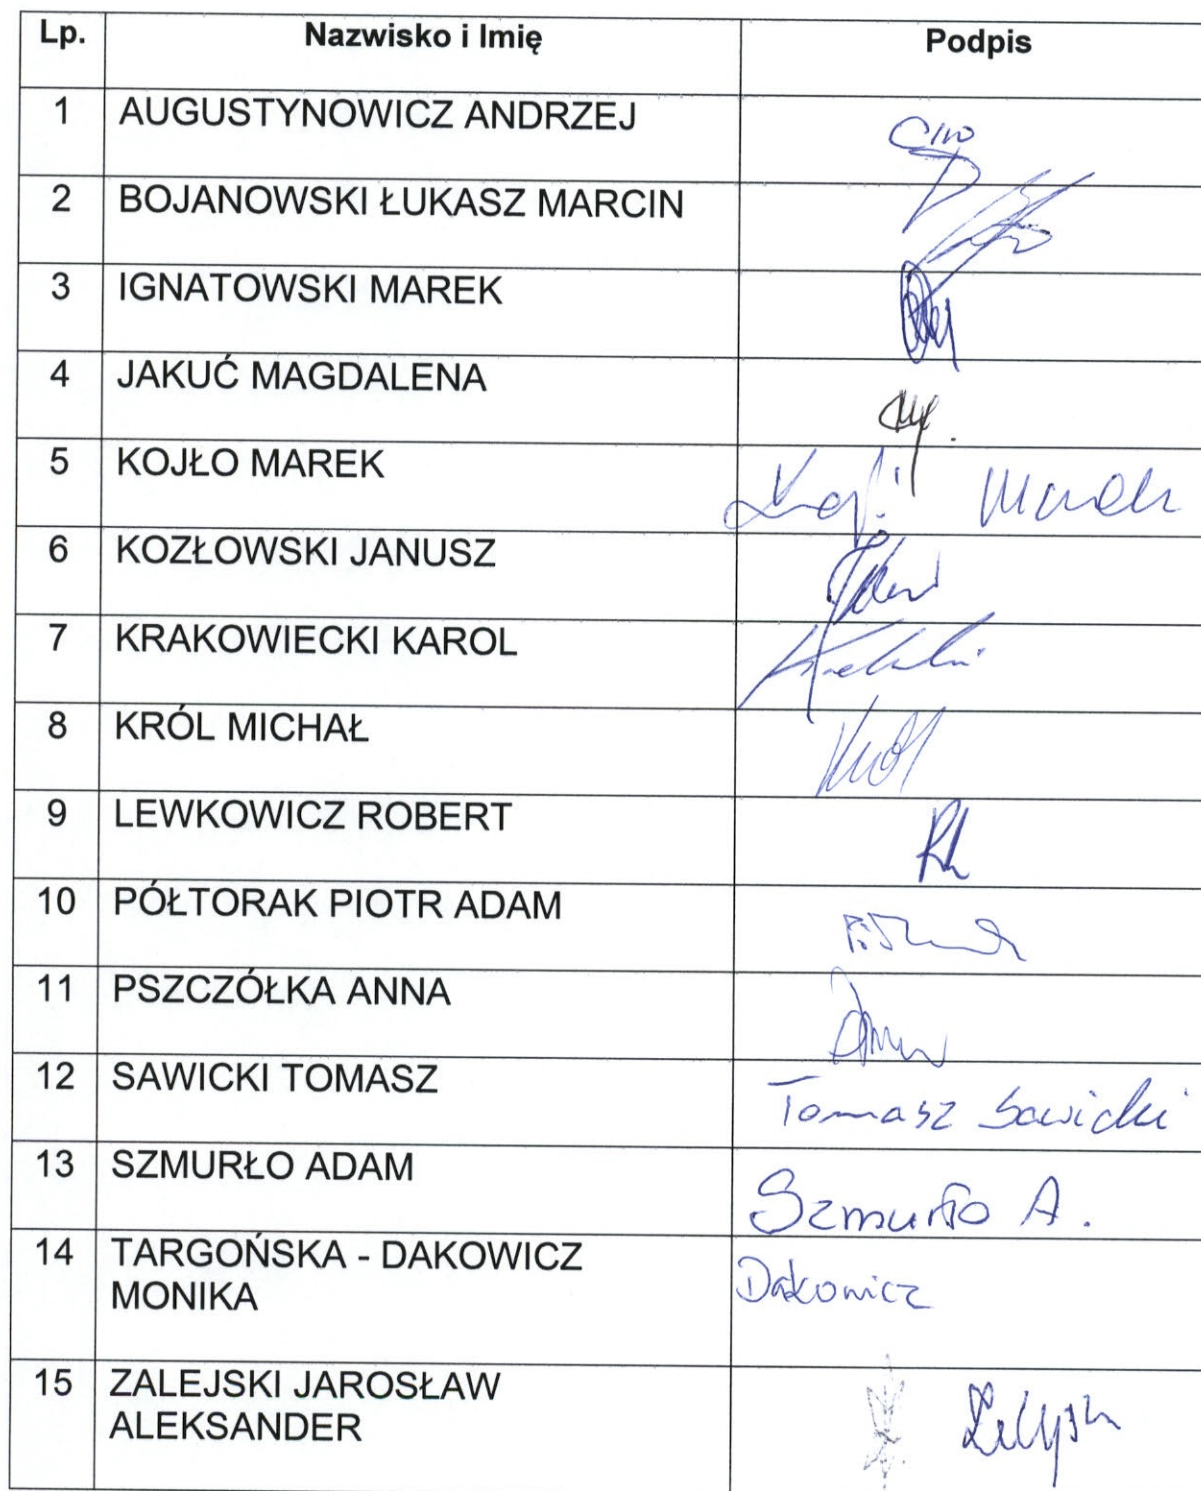 Lp. Nazwisko i Imię Podpis
1 AUGUSTYNOWICZ ANDRZEJ
2 BOJANOWSKI ŁUKASZ MARCIN
3 IGNATOWSKI MAREK
4 JAKUĆ MAGDALENA
5 KOJŁO MAREK Marek
6 KOZŁOWSKI JANUSZ
7 KRAKOWIECKI KAROL
8 KRÓL MICHAŁ Król
9 LEWKOWICZ ROBERT
10 PÓŁTORAK PIOTR ADAM
11 PSZCZÓŁKA ANNA
12 SAWICKI TOMASZ Tomasz Sawicki
13 SZMURŁO ADAM Szmurło A.
14 TARGOŃSKA - DAKOWICZ Dakowicz
MONIKA
15 ZALEJSKI JAROSŁAW
ALEKSANDER